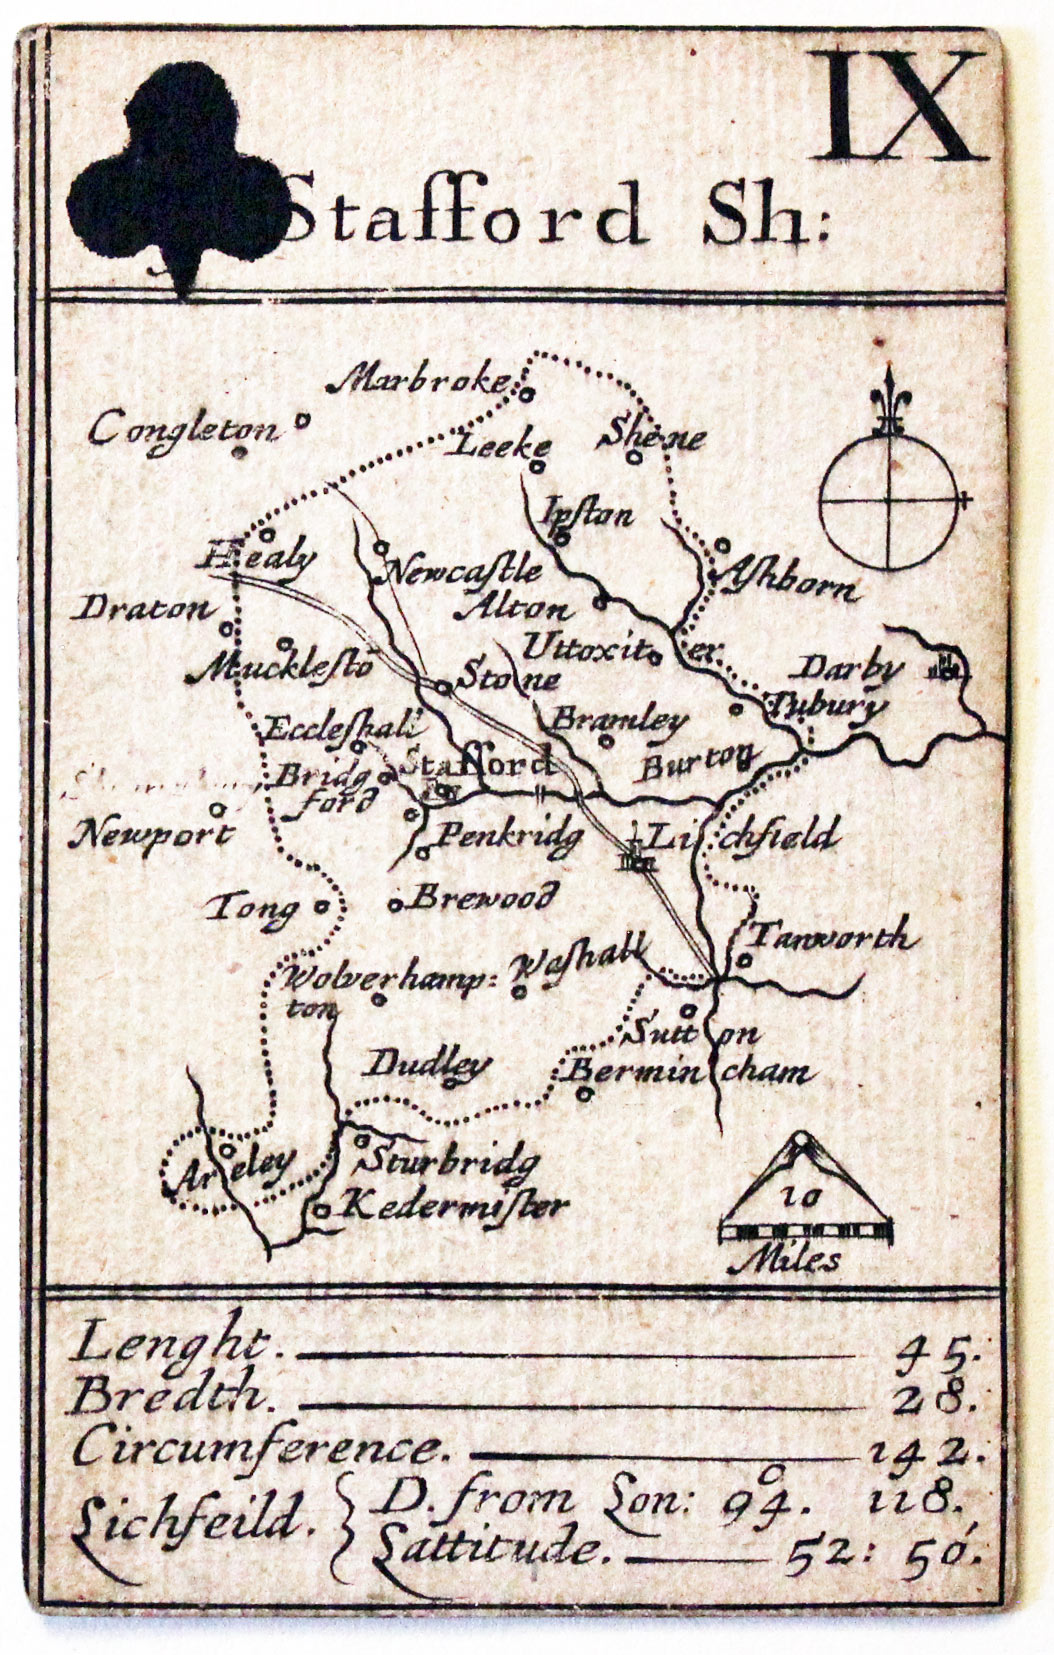 IX
Stafford Sh:
Marbroke
Congleton
Leeke
Shene
Ipston
Healy
Newcastle
Ashborn
Draton
Alton
Uttoxiter
Mucklesto
Stone
Darby
Tubury
Eccleshall
Bramley
Stafford
Burton
Bridg
ford
Newport
Penkridg
Lichfield
Tong
Brewood
Tamworth
Wolverhamp:
ton
Washall
Sutton
Dudley
Bermincham
Areley
Sturbridg
Kedermister
10
Miles
Lenght. 45.
Bredth. 28.
Circumference. 142.
Lichfeild. D. from Lon: 94. 118.
Lattitude. 52: 50.